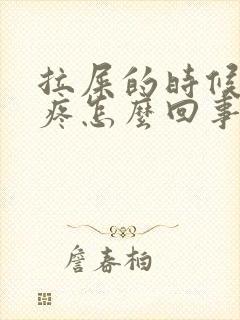 拉屎的時候
疼怎麼回事
詹春柏